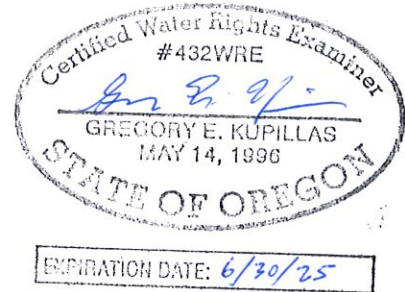 Certified Water Rights Examiner
#432WRE
GREGORY E. KUPILLAS
MAY 14, 1996
STATE OF OREGON
EXPIRATION DATE: 6/30/25